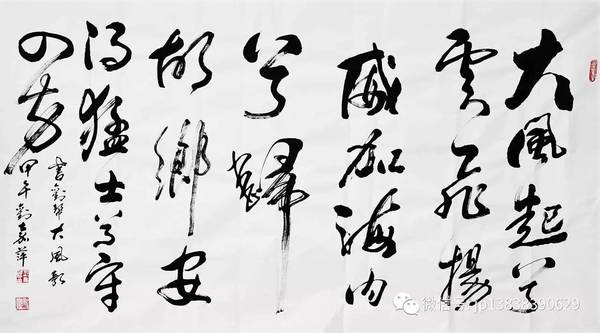 大風起兮
雲飛揚
威加海内
兮歸
故鄉安
得猛士兮守
四方
書劉邦大風歌
甲午劉嘉萍
微信号:jp13838390679